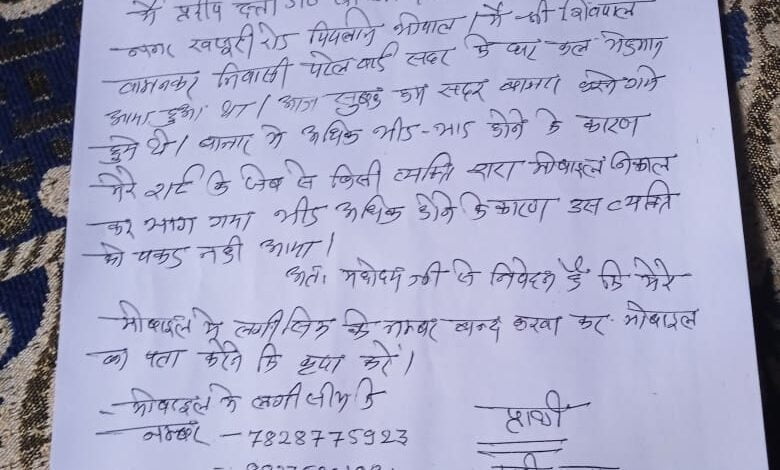 मैं प्रदीप दत्ता
नगर खजूरी रोड पिपलानि भोपाल । मैं श्री शिवपाल
वामनकर निवासी पटेल वार्ड सदर के घर कल मेहमान
आया हुआ था । आज सुबह हम सदर बाजार करने गये
हुये थे । बाजार मे अधिक भीड-भाड होने के कारण
मेरे शर्ट कि जेब से किसी व्यक्ति द्वारा मोबाइल निकाल
कर भाग गया भीड अधिक होने के कारण उस व्यक्ति
को पकड नही आया ।
अतः महोदय जी से निवेदन है कि मेरे
मोबाइल मे लगी सिम के नम्बर बन्द करवा कर मोबाइल
का पता करने कि कृपा करें ।
- मोबाइल मे लगी सीम कि
नम्बर - 7828775923
प्रार्थी